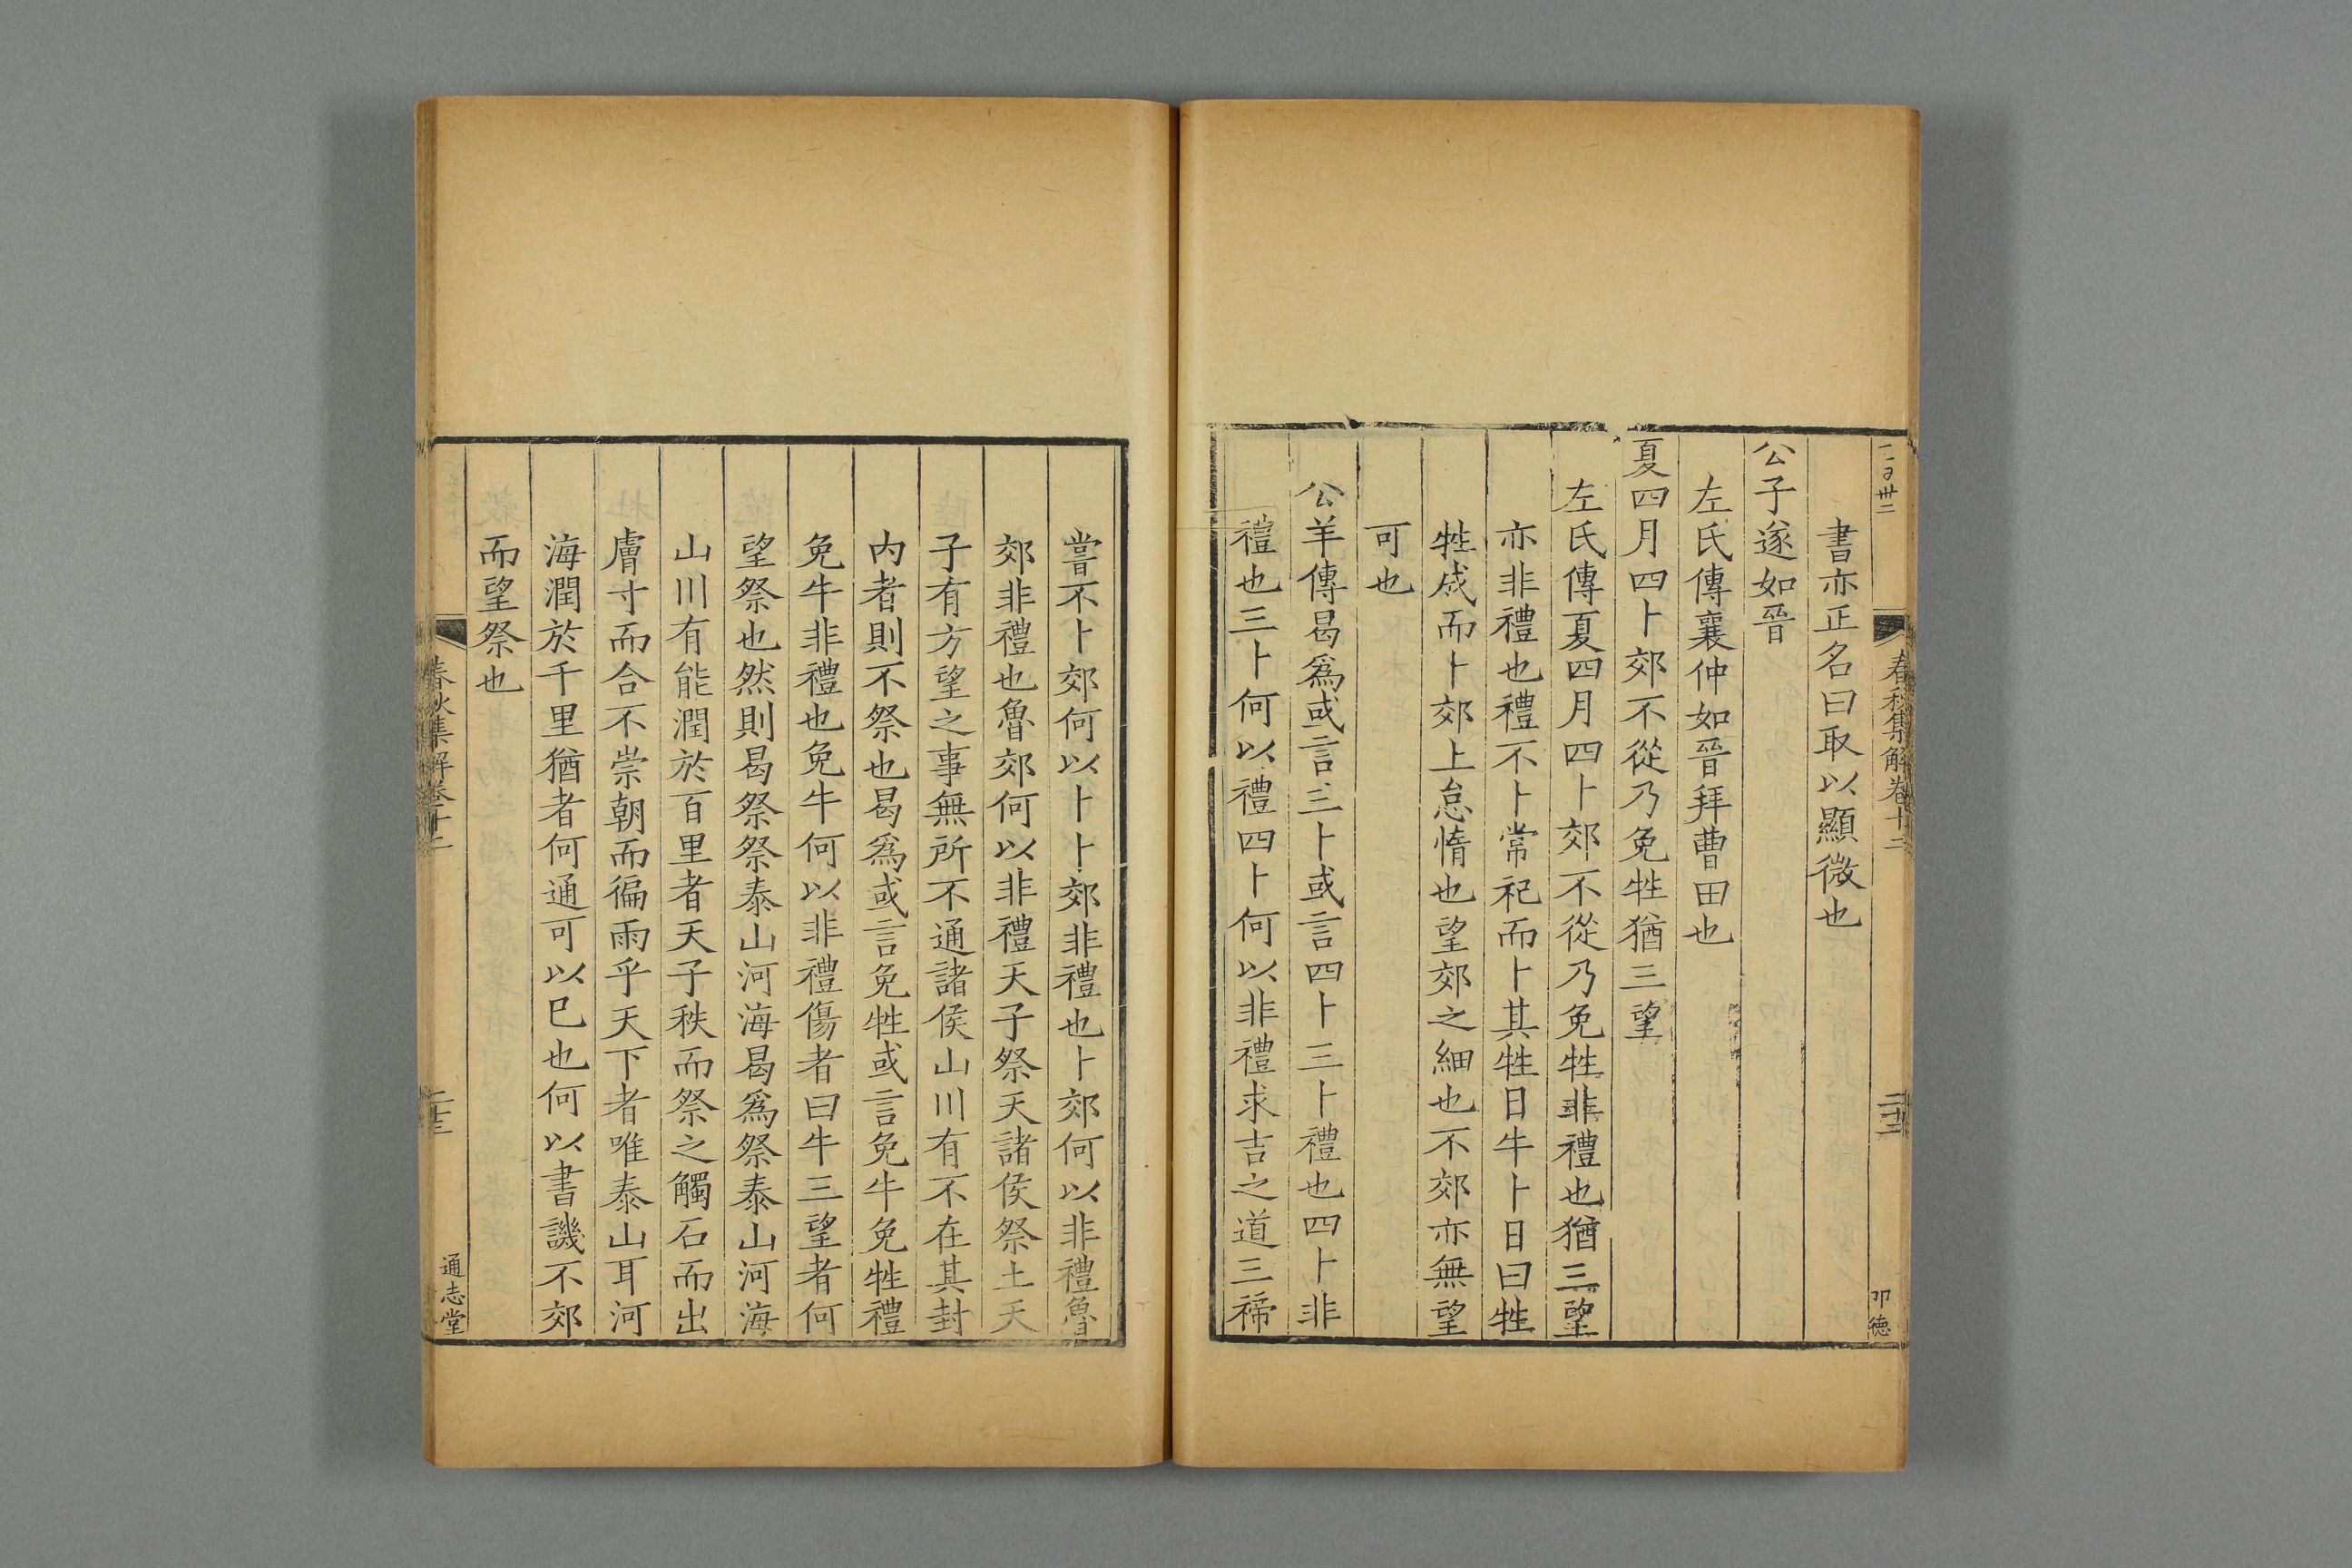 春秋集解卷十二
書亦正名曰取以顯微也
公子遂如晉
左氏傳襄仲如晉拜曹田也
夏四月四卜郊不從乃免牲猶三望
左氏傳夏四月四卜郊不從乃免牲非禮也猶三望
亦非禮也禮不卜常祀而卜其牲日牛卜日曰牲
牲成而卜郊上怠惰也望郊之細也不郊亦無望
可也
公羊傳曷爲或言三卜或言四卜三卜禮也四卜非
禮也三卜何以禮四卜何以非禮求吉之道三禘
嘗不卜郊何以卜卜郊非禮也卜郊何以非禮魯
郊非禮也魯郊何以非禮天子祭天諸侯祭土天
子有方望之事無所不通諸侯山川有不在其封
内者則不祭也曷爲或言免牲或言免牛免牲禮
免牛非禮也免牛何以非禮傷者曰牛三望者何
望祭也然則曷祭祭泰山河海曷爲祭泰山河海
山川有能潤於百里者天子秩而祭之觸石而出
膚寸而合不崇朝而徧雨乎天下者唯泰山耳河
海潤於千里猶者何通可以已也何以書譏不郊
而望祭也
春秋集解卷十二
通志堂